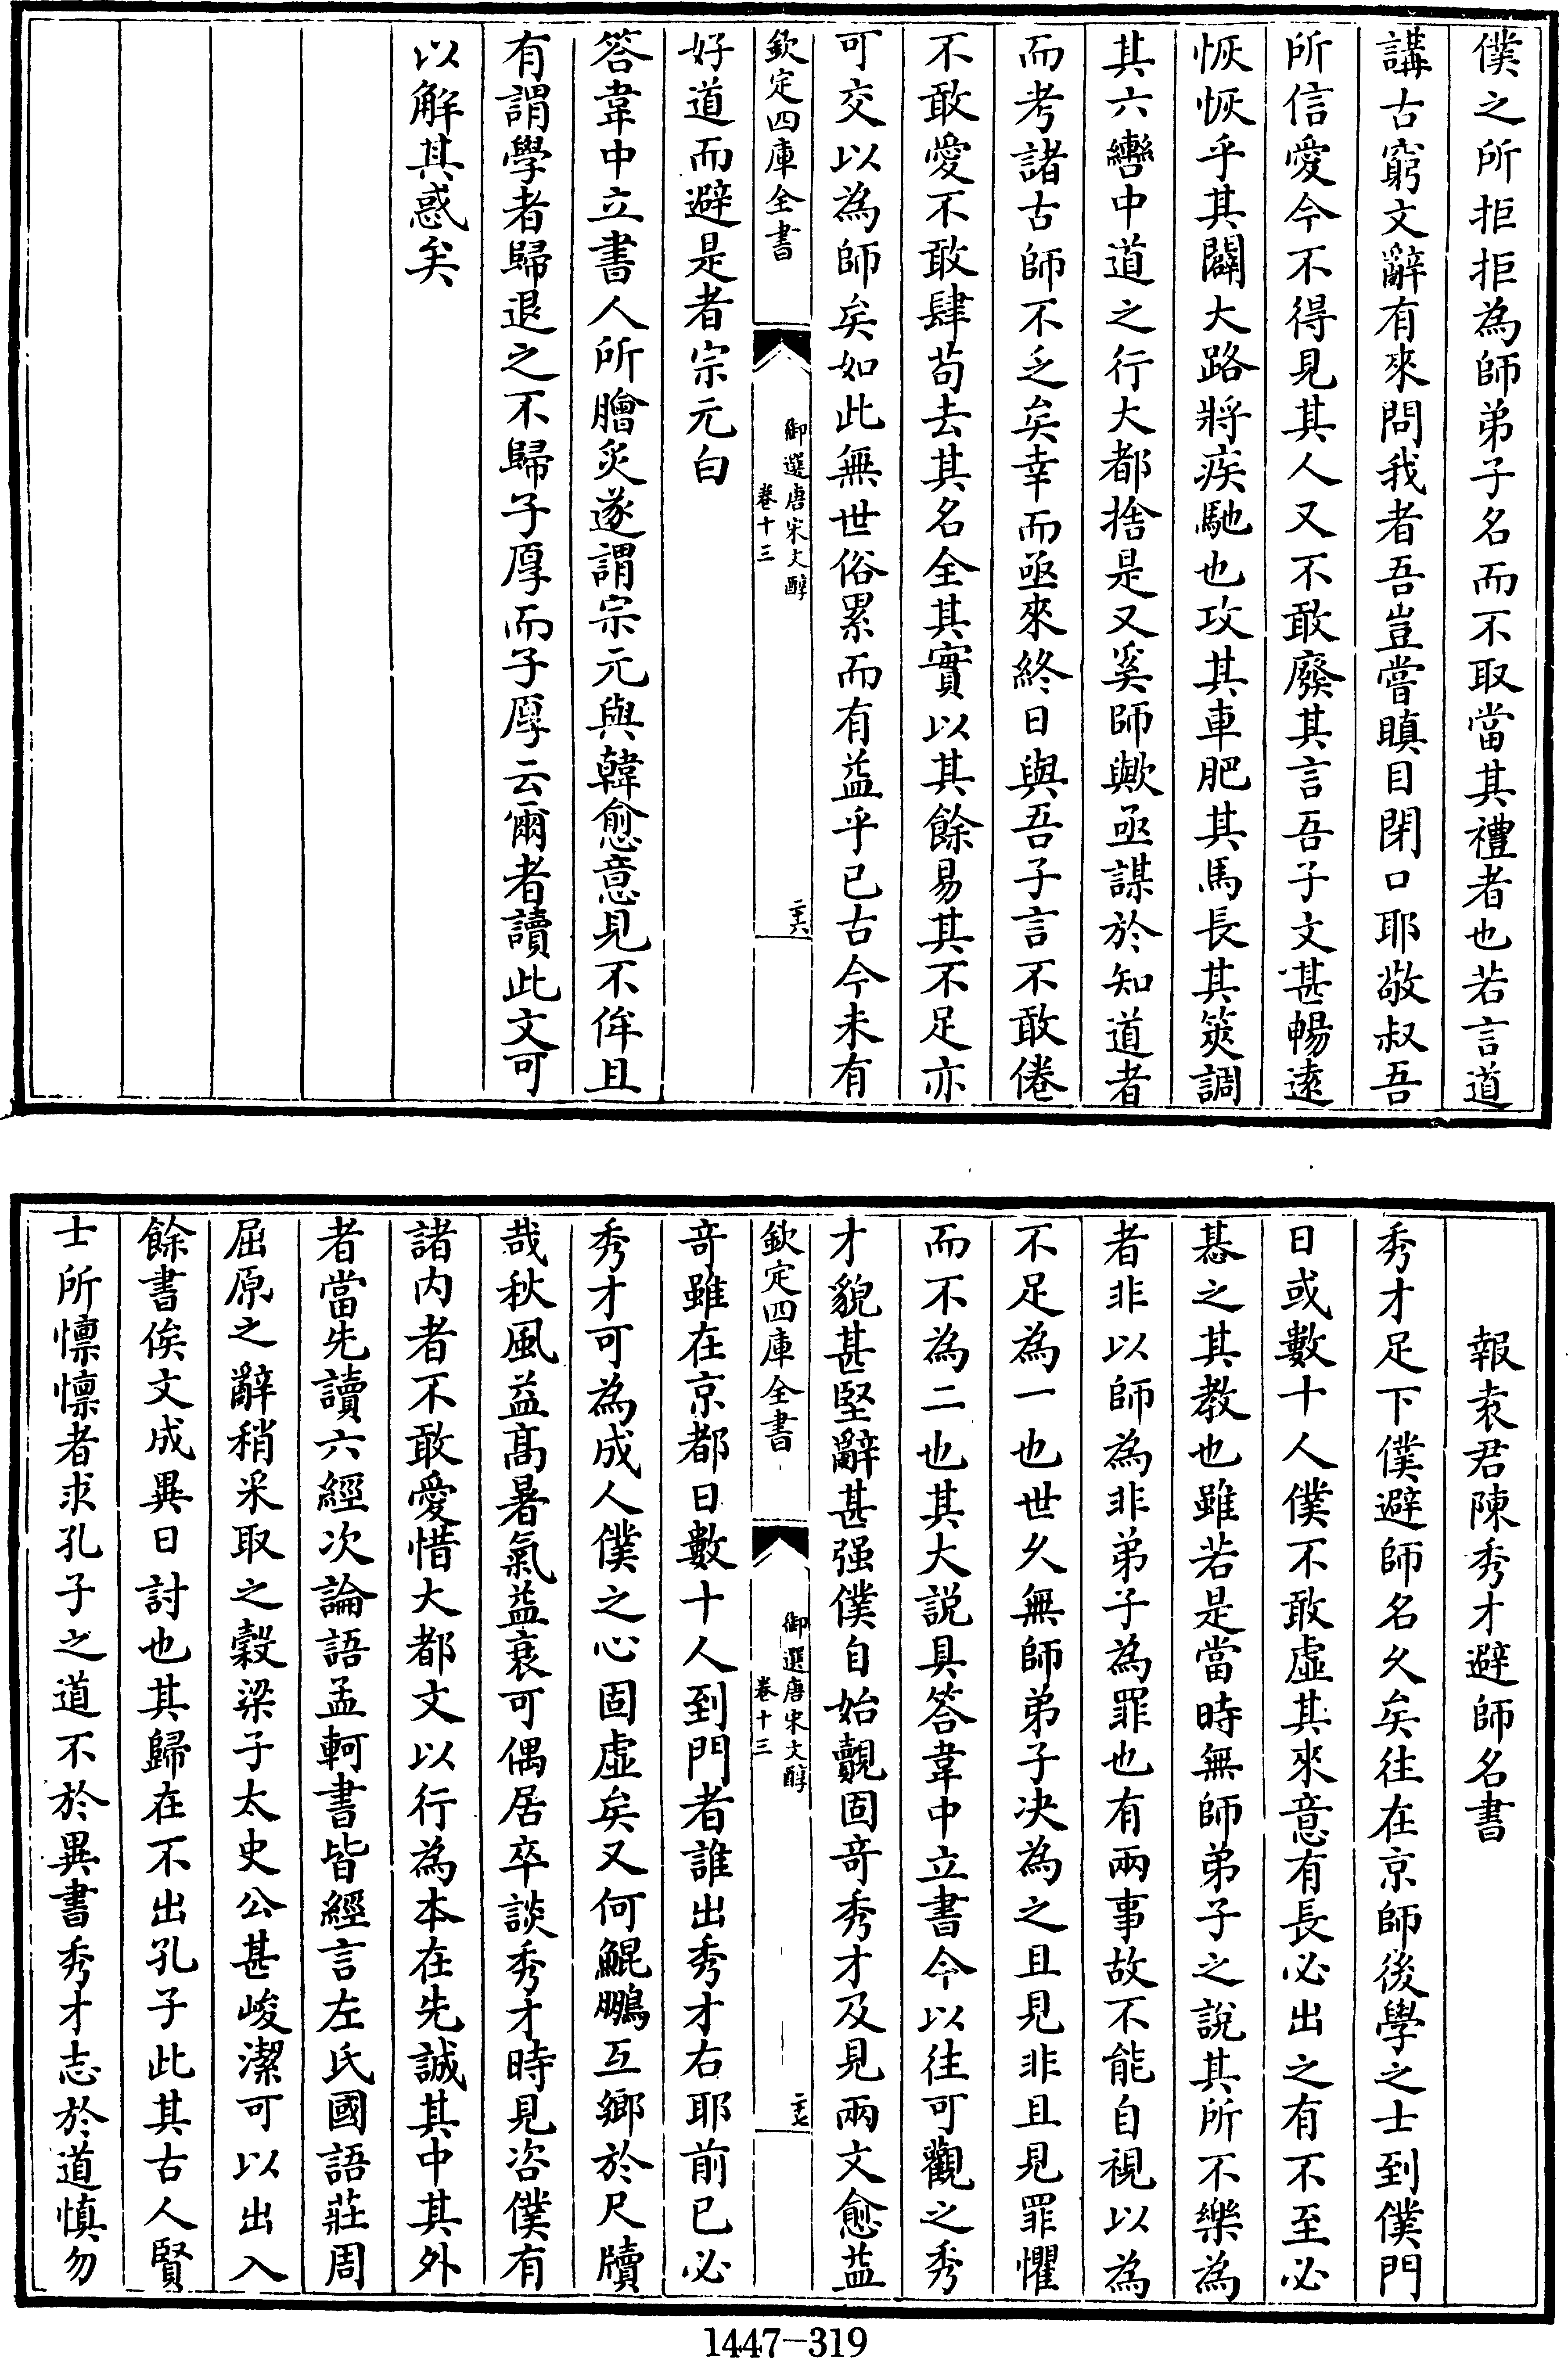 僕之所拒拒為師弟子名而不取當其禮者也若言道
講古窮文辭有來問我者吾豈嘗瞋目閉口耶敬叔吾
所信愛今不得見其人又不敢廢其言吾子文甚暢遠
恢恢乎其闢大路將疾馳也攻其車肥其馬長其筴調
其六轡中道之行大都捨是又奚師歟亟謀於知道者
而考諸古師不乏矣幸而亟來終日與吾子言不敢倦
不敢愛不敢肆苟去其名全其實以其餘易其不足亦
可交以為師矣如此無世俗累而有益乎已古今未有
欽定四庫全書
御選唐宋文醇
卷十三
二十六
好道而避是者宗元白
答韋中立書人所膾炙遂謂宗元與韓愈意見不侔且
有謂學者歸退之不歸子厚而子厚云爾者讀此文可
以解其惑矣
報袁君陳秀才避師名書
秀才足下僕避師名久矣往在京師後學之士到僕門
日或數十人僕不敢虛其來意有長必出之有不至必
惎之其教也雖若是當時無師弟子之說其所不樂為
者非以師為非弟子為罪也有兩事故不能自視以為
不足為一也世久無師弟子决為之且見非且見罪懼
而不為二也其大説具答韋中立書今以往可觀之秀
才貌甚堅辭甚强僕自始覿固奇秀才及見兩文愈益
欽定四庫全書
御選唐宋文醇
卷十三
二十七
奇雖在京都日數十人到門者誰出秀才右耶前已必
秀才可為成人僕之心固虛矣又何鯤鵬互鄉於尺牘
哉秋風益髙暑氣益衰可偶居卒談秀才時見咨僕有
諸内者不敢愛惜大都文以行為本在先誠其中其外
者當先讀六經次論語孟軻書皆經言左氏國語莊周
屈原之辭稍采取之穀梁子太史公甚峻潔可以出入
餘書俟文成異日討也其歸在不出孔子此其古人賢
士所懍懍者求孔子之道不於異書秀才志於道慎勿
1447-319